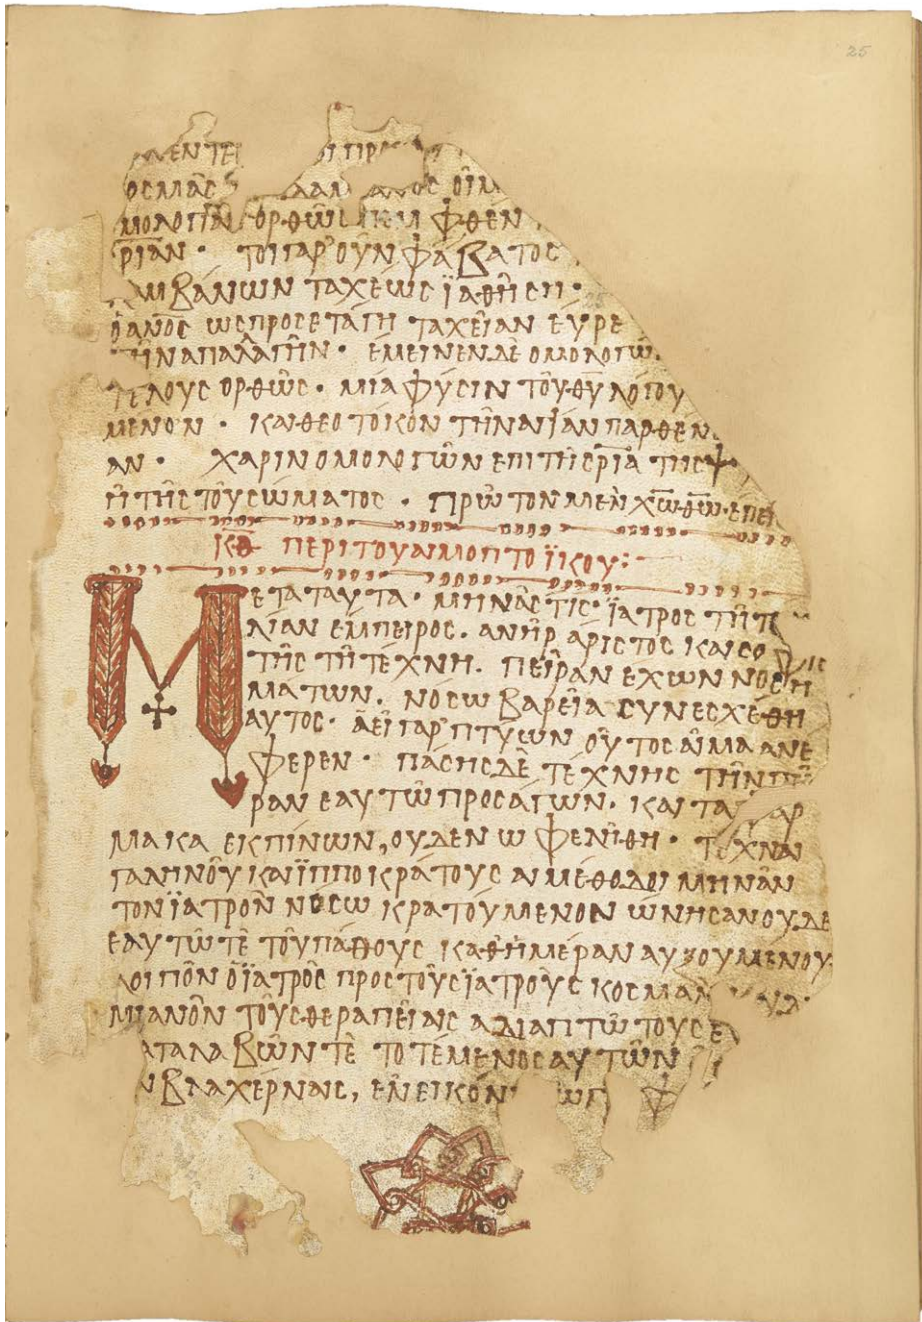 25
ΜΕΝ ΤΕ ΟΙ ΠΡ
ΟCΜΑC ΔΑΜ ΑΝΟC ΟΙΜ
ΜΟΛΟΓΙΑΝ ΟΡΘΩC ΦΘΕΝ
ΡΙΑΝ · ΤΟΙΓΑΡΟΥΝ ΦΑΒΑΤΟC
ΛΑΜΒΑΝΩΝ ΤΑΧΕΩC ΪΑΘΗCΗ ·
ΪΑΝΟC ΩC ΠΡΟCΕΤΑΓΗ ΤΑΧΕΙΑΝ ΕΥΡΕ
ΤΗΝ ΑΠΑΛΑΓΗΝ · ΕΜΕΙΝΕΝ ΔΕ ΟΜΟΛΟΓΩΝ
ΤΕΛΟΥC ΟΡΘΩC · ΜΙΑ ΦΥCΙΝ ΤΟΥ ΘΥ ΛΟΓΟΥ
ΜΕΝΟΝ · ΚΑΙ ΘΕΟΤΟΚΟΝ ΤΗΝ ΑΓΙΑΝ ΠΑΡΘΕΝ
ΑΝ · ΧΑΡΙΝ ΟΜΟΛΟΓΩΝ ΕΠΙ ΤΗC ΡΙΑ ΤΗC ΨΥ
Η ΤΗC ΤΟΥ CΩΜΑΤΟC · ΠΡΩΤΟΝ ΜΕΝ ΧΩ ΘΩ · ΕΠΕΙ
ΚΘ ΠΕΡΙ ΤΟΥ ΑΙΜΟΠΤΟΪΚΟΥ :
ΜΕΤΑ ΤΑΥΤΑ · ΜΗΝΑC ΤΙC · ΪΑΤΡΟC ΤΗΝ
ΛΙΑΝ ΕΜΠΕΙΡΟC · ΑΝΗΡ ΑΡΙCΤΟC ΚΑΙ CΟΦΙC
ΤΗC ΤΗ ΤΕΧΝΗ · ΠΕΙΡΑΝ ΕΧΩΝ ΝΟCΗ
ΜΑΤΩΝ · ΝΟCΩ ΒΑΡΕΙΑ CΥΝΕCΧΕΘΗ
ΑΥΤΟC · ΑΕΙ ΓΑΡ ΠΤΥΩΝ ΟΥΤΟC ΑΙΜΑ ΑΝΕ
ΦΕΡΕΝ · ΠΑCΗC ΔΕ ΤΕΧΝΗC ΤΗΝ ΠΕΙ
ΡΑΝ ΕΑΥΤΩ ΠΡΟCΑΓΩΝ · ΚΑΙ ΤΑ ΦΑΡ
ΜΑΚΑ ΕΚΠΙΝΩΝ, ΟΥΔΕΝ ΩΦΕΛΗΘΗ · ΤΕΧΝΑΙ
ΓΑΛΗΝΟΥ ΚΑΙ ΪΠΠΟΚΡΑΤΟΥC ΑΙ ΜΕΘΟΔΟΙ ΜΗΝΑΝ
ΤΟΝ ΪΑΤΡΟΝ ΝΟCΩ ΚΡΑΤΟΥΜΕΝΟΝ ΩΝΗCΑΝ ΟΥΔΕ
ΕΑΥΤΩ ΤΕ ΤΟΥ ΠΑΘΟΥC ΚΑΘΗΜΕΡΑΝ ΑΥΞΟΥΜΕΝΟΥ
ΛΟΙΠΟΝ Ο ΪΑΤΡΟC ΠΡΟC ΤΟΥC ΪΑΤΡΟΥC ΚΟCΜΑΝ
ΜΙΑΝΟΝ ΤΟΥC ΘΕΡΑΠΕΙΑΙC ΑΔΙΑΠΤΩΤΟΥC
ΑΤΑΛΑΒΩΝ ΤΕ ΤΟ ΤΕΜΕΝΟC ΑΥΤΩΝ
Ν ΒΛΑΧΕΡΝΑΙC, ΕΝ ΕΙΚΟΝ